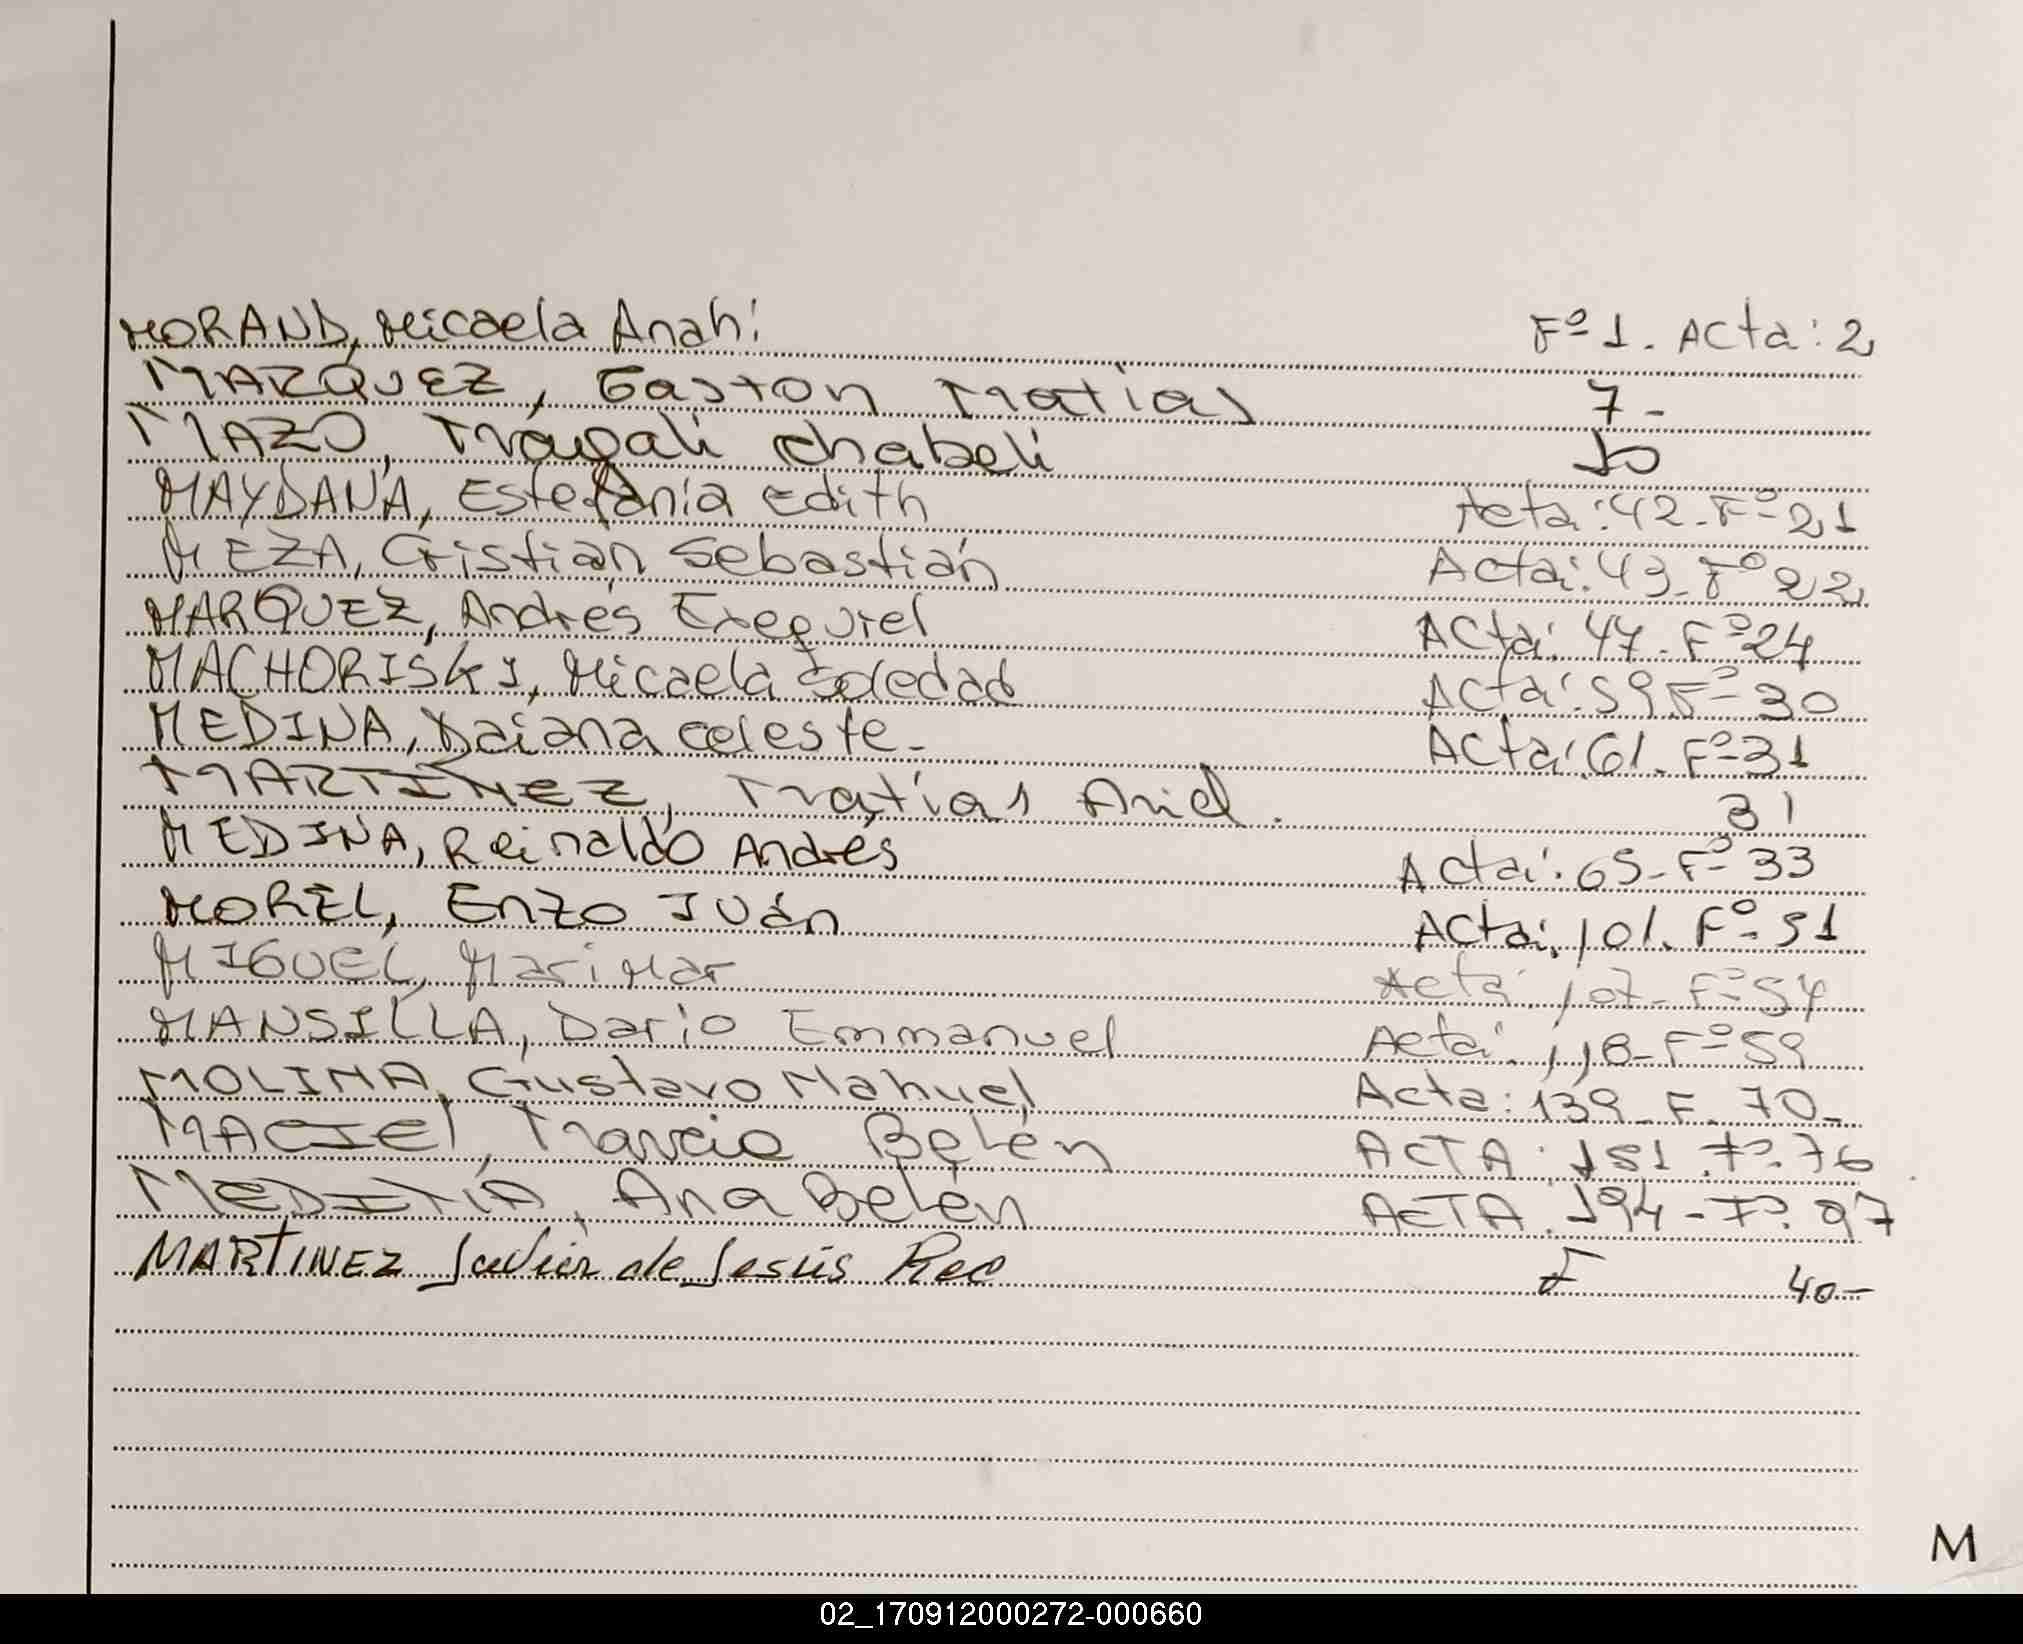 MORAND, Micaela Anahí Fº 1. Acta: 2
MARQUEZ, Gaston Matias 7-
MAZO, Magali Chabeli 10
MAYDANA, Estefanía Edith Acta: 42-Fº 21
MEZA, Cristian Sebastián Acta: 43-Fº 22
MARQUEZ, Andrés Exequiel Acta: 47-Fº 24
MACHORISKI, Micaela Soledad Acta: 59 Fº 30
MEDINA, Daiana Celeste- Acta: 61-Fº 31
MARTINEZ, Matías Ariel. 31
MEDINA, Reinaldo Andrés Acta: 65-Fº 33
MOREL, Enzo Iván Acta: 101. Fº 51
MIGUEL, Marimar Acta: 107-Fº 54
MANSILLA, Dario Emmanuel Acta: 118-Fº 59
MOLINA, Gustavo Nahuel Acta: 139-F-70-
MACIEL, Marcia Belén ACTA: 151. Fº. 76
MEDINA, Ana Belén ACTA. 194-Fº. 97
MARTINEZ Javier de Jesús Rec F 40-
M
02_170912000272-000660